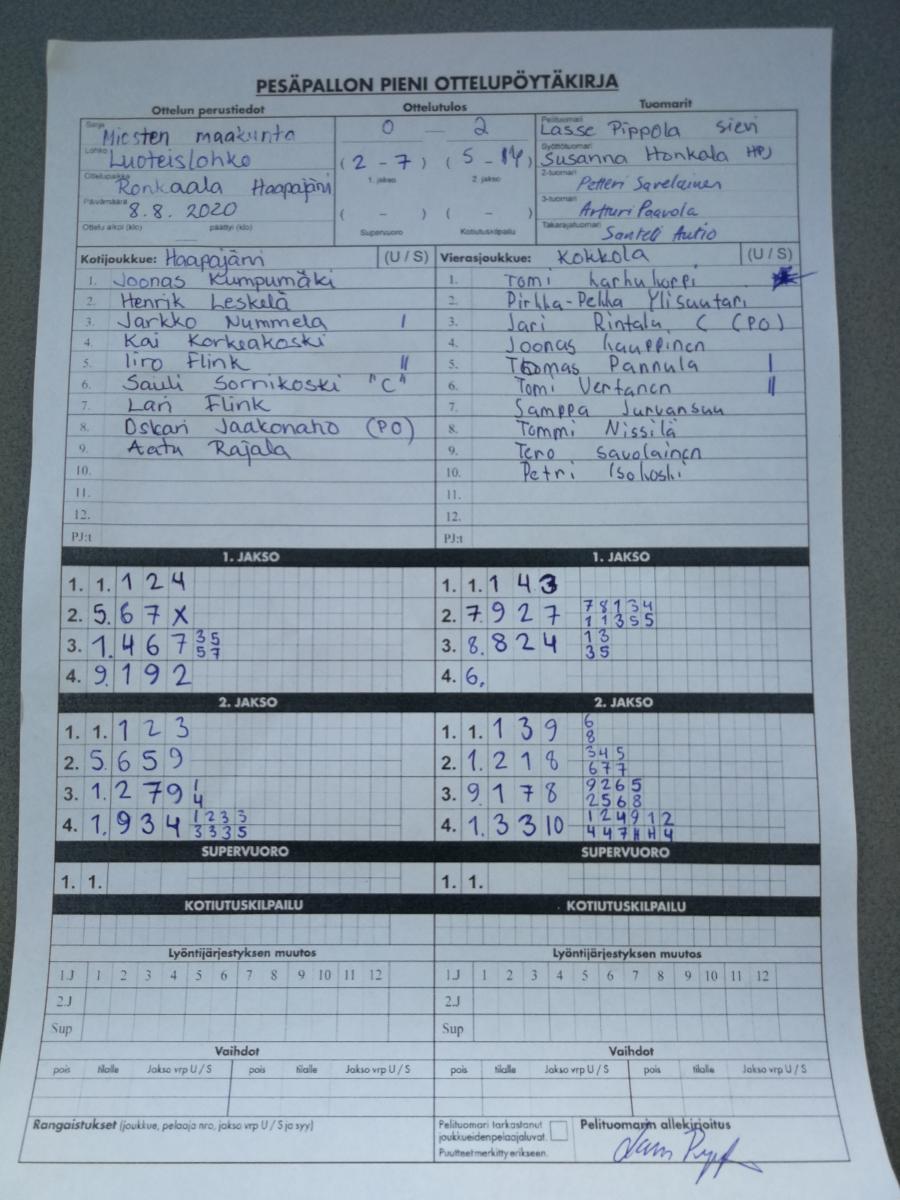 PESÄPALLON PIENI OTTELUPÖYTÄKIRJA
Ottelun perustiedot Ottelutulos Tuomarit
Sarja Miesten maakunta 0 — 2 Pelituomari Lasse Pippola Sievi
Lohko Luoteislohko (2 - 7) (5 - 14) Syöttötuomari Susanna Honkala HPJ
Ottelupaikka Ronkaala Haapajärvi 1. jakso 2. jakso 2-tuomari Petteri Savelainen
Päivämäärä 8.8. 2020 ( - ) ( - ) 3-tuomari Artturi Paavola
Ottelu alkoi (klo) päättyi (klo) Supervuoro Kotiutuskilpailu Takarajatuomari Santeli Autio
Kotijoukkue: Haapajärvi (U / S) Vierasjoukkue: Kokkola (U / S)
1. Joonas Kumpumäki 1. Tomi Karhukorpi
2. Henrik Leskelä 2. Pirkka-Pekka Ylisuutari
3. Jarkko Nummela I 3. Jari Rintala C (PO)
4. Kai Korkeakoski 4. Joonas Kauppinen
5. Iiro Flink II 5. Thomas Pannula I
6. Sauli Sornikoski "C" 6. Tomi Vertanen II
7. Lari Flink 7. Samppa Jurvansuu
8. Oskari Jaakonaho (PO) 8. Tommi Nissilä
9. Aatu Rajala 9. Tero Savolainen
10. 10. Petri Isokoski
11. 11.
12. 12.
PJ:t PJ:t
1. JAKSO 1. JAKSO
1. 1. 1 2 4 1. 1. 1 4 3
2. 5. 6 7 X 2. 7 9 2 7 7 8 1 3 4
1 1 3 5 5
3. 1. 4 6 7 3 5 3. 8. 8 2 4 1 3
5 7 3 5
4. 9. 1 9 2 4. 6.
2. JAKSO 2. JAKSO
1. 1. 1 2 3 1. 1. 1 3 9 6
8
2. 5. 6 5 9 2. 1. 2 1 8 3 4 5
6 7 7
3. 1. 2 7 9 1 3. 9 1 7 8 9 2 6 5
4 2 5 6 8
4. 1. 9 3 4 1 2 3 3 4. 1. 3 3 10 1 2 4 9 1 2
3 3 3 5 4 4 7 H H 4
SUPERVUORO SUPERVUORO
1. 1. 1. 1.
KOTIUTUSKILPAILU KOTIUTUSKILPAILU
Lyöntijärjestyksen muutos Lyöntijärjestyksen muutos
1.J 1 2 3 4 5 6 7 8 9 10 11 12 1.J 1 2 3 4 5 6 7 8 9 10 11 12
2.J 2.J
Sup Sup
Vaihdot Vaihdot
pois tilalle Jakso vrp U / S pois tilalle Jakso vrp U / S pois tilalle Jakso vrp U / S pois tilalle Jakso vrp U / S
Rangaistukset (joukkue, pelaaja nro, jakso vrp U / S ja syy) Pelituomari tarkastanut Pelituomarin allekirjoitus
joukkueiden pelaajaluvat.
Puutteet merkitty erikseen.